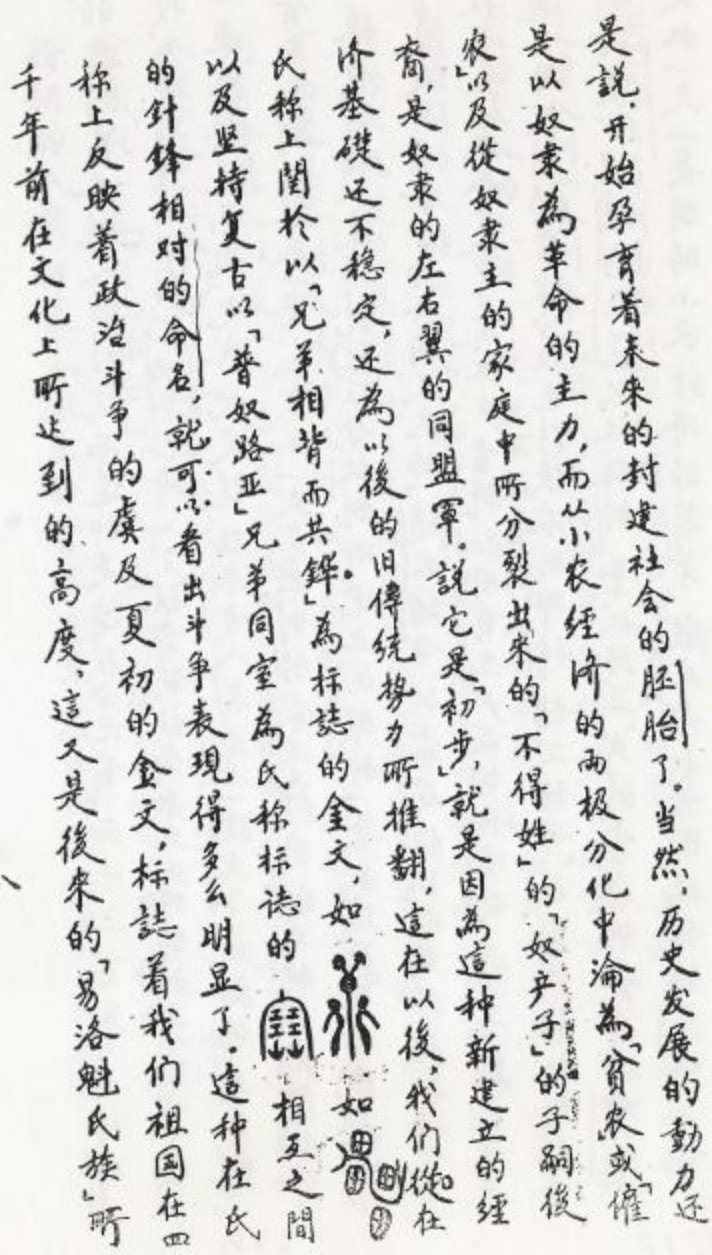 是説，开始孕育着未来的封建社会的胚胎了。当然，历史发展的動力还
是以奴隶為革命的主力，而从小农经济的两极分化中淪為「貧农」或「僱
农」以及從奴隶主的家庭中所分裂出來的「不得姓」的「奴产子」的子嗣後
裔，是奴隶的左右翼的同盟軍。説它是「初步」，就是因為這种新建立的經
济基礎还不稳定，还為以後的旧傳統势力所推翻，這在以後，我们從在
氏称上関於以「兄弟相背而共鏵」為标誌的金文，如 如
以及坚持复古以「普奴路亚」兄弟同室為氏称标誌的 相互之間
的針鋒相对的命名，就可以看出斗争表現得多么明显了。這种在氏
称上反映着政治斗争的虞及夏初的金文，标誌着我们祖国在四
千年前在文化上所达到的高度，這又是後来的「易洛魁氏族」所